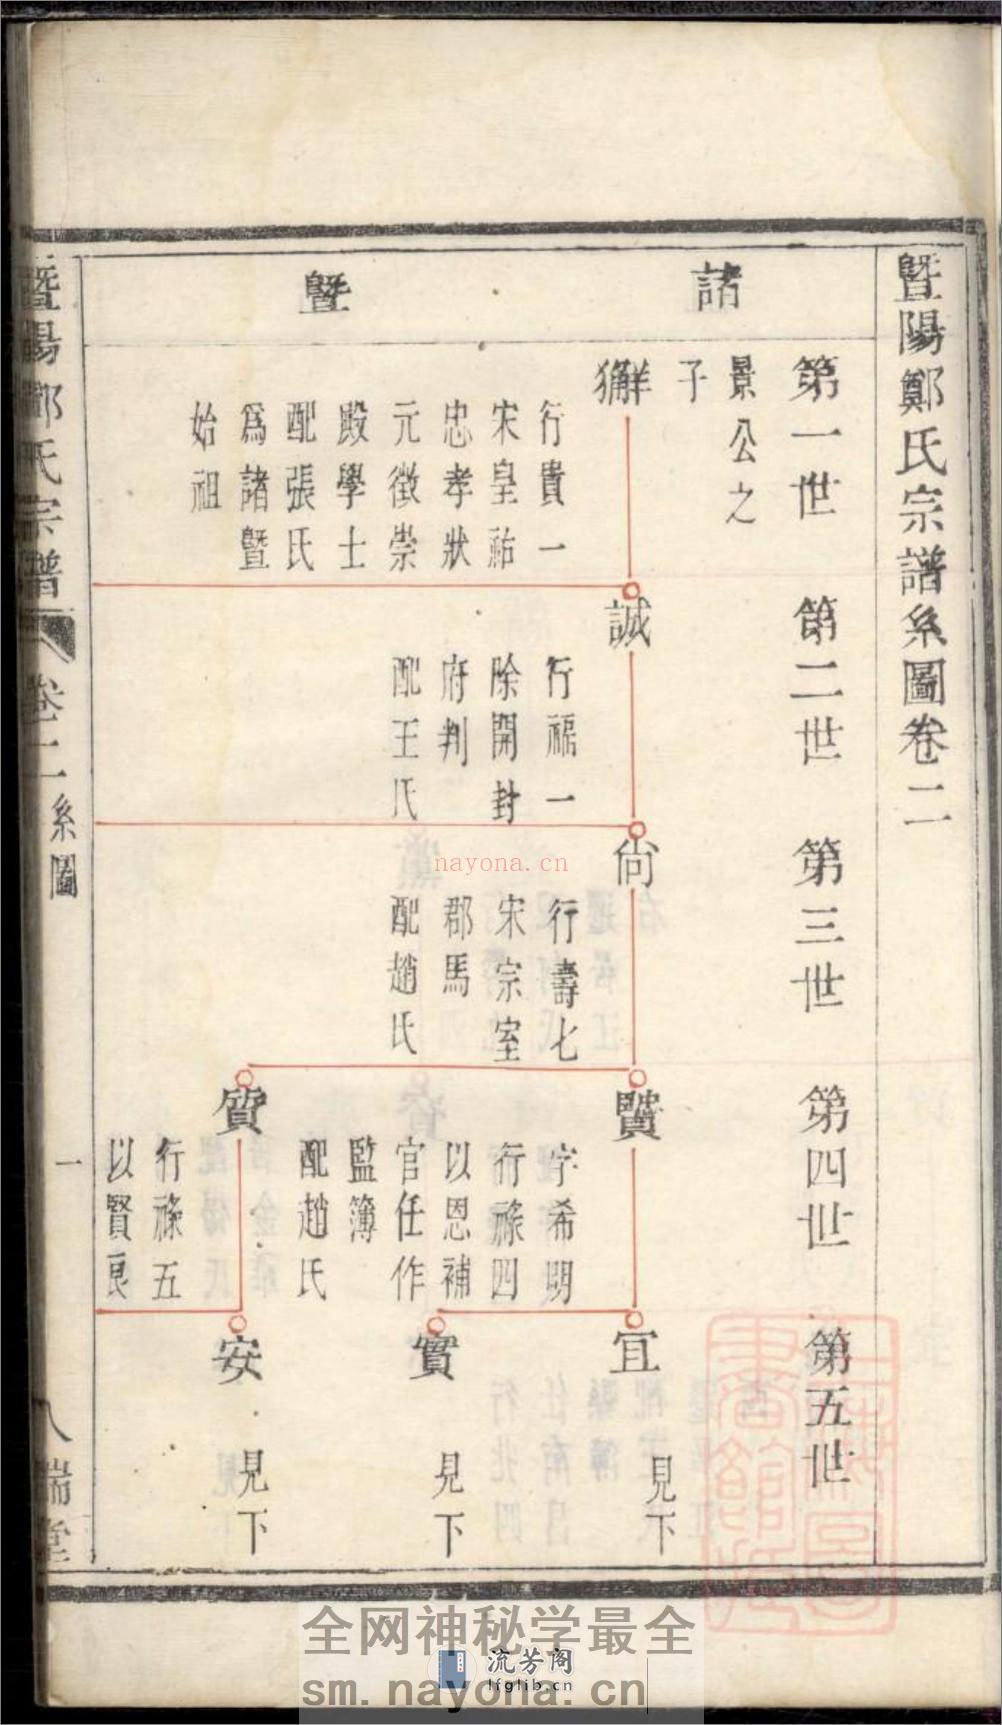 暨陽鄭氏宗譜系圖卷二
諸暨
第一世
景公之
子
獬
行貴一
宋皇祐
忠孝狀
元徵崇
殿學士
配張氏
爲諸暨
始祖
第二世
誠
行福一
除開封
府判
配王氏
第三世
尙
行壽七
宋宗室
郡馬
配趙氏
第四世
賢
字希明
行祿四
以恩補
官任作
監簿
配趙氏
質
行祿五
以賢良
第五世
宜
見下
實
見下
安
見下
暨陽鄭氏宗譜
卷二
系圖
一
八瑞堂
nayona.cn
全网神秘学最全
流芳阁
lfglib.cn
sm.nayona.cn